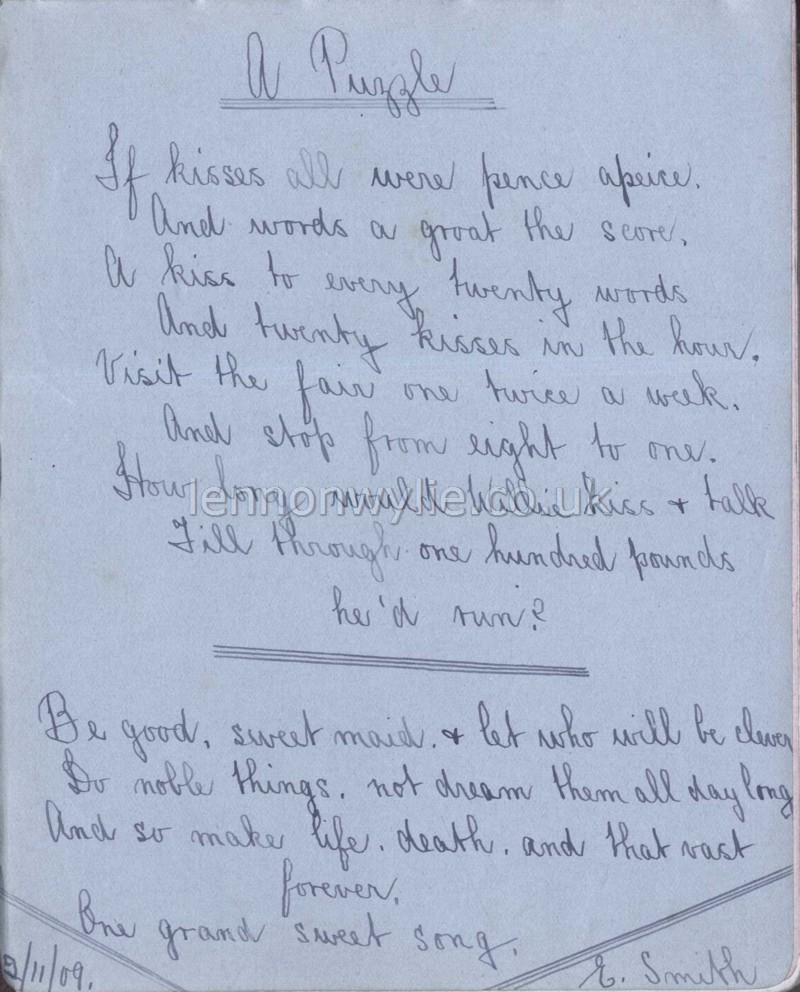 A Puzzle
If kisses all were pence apeice.
And words a groat the score.
A kiss to every twenty words
And twenty kisses in the hour.
Visit the fair one twice a week.
And stop from eight to one.
How long would Willie kiss + talk
lennonwylie.co.uk
Till through one hundred pounds
he'd run?
Be good, sweet maid. + let who will be clever
Do noble things. not dream them all day long
And so make life. death. and that vast
forever.
One grand sweet song.
/11/09.
E. Smith